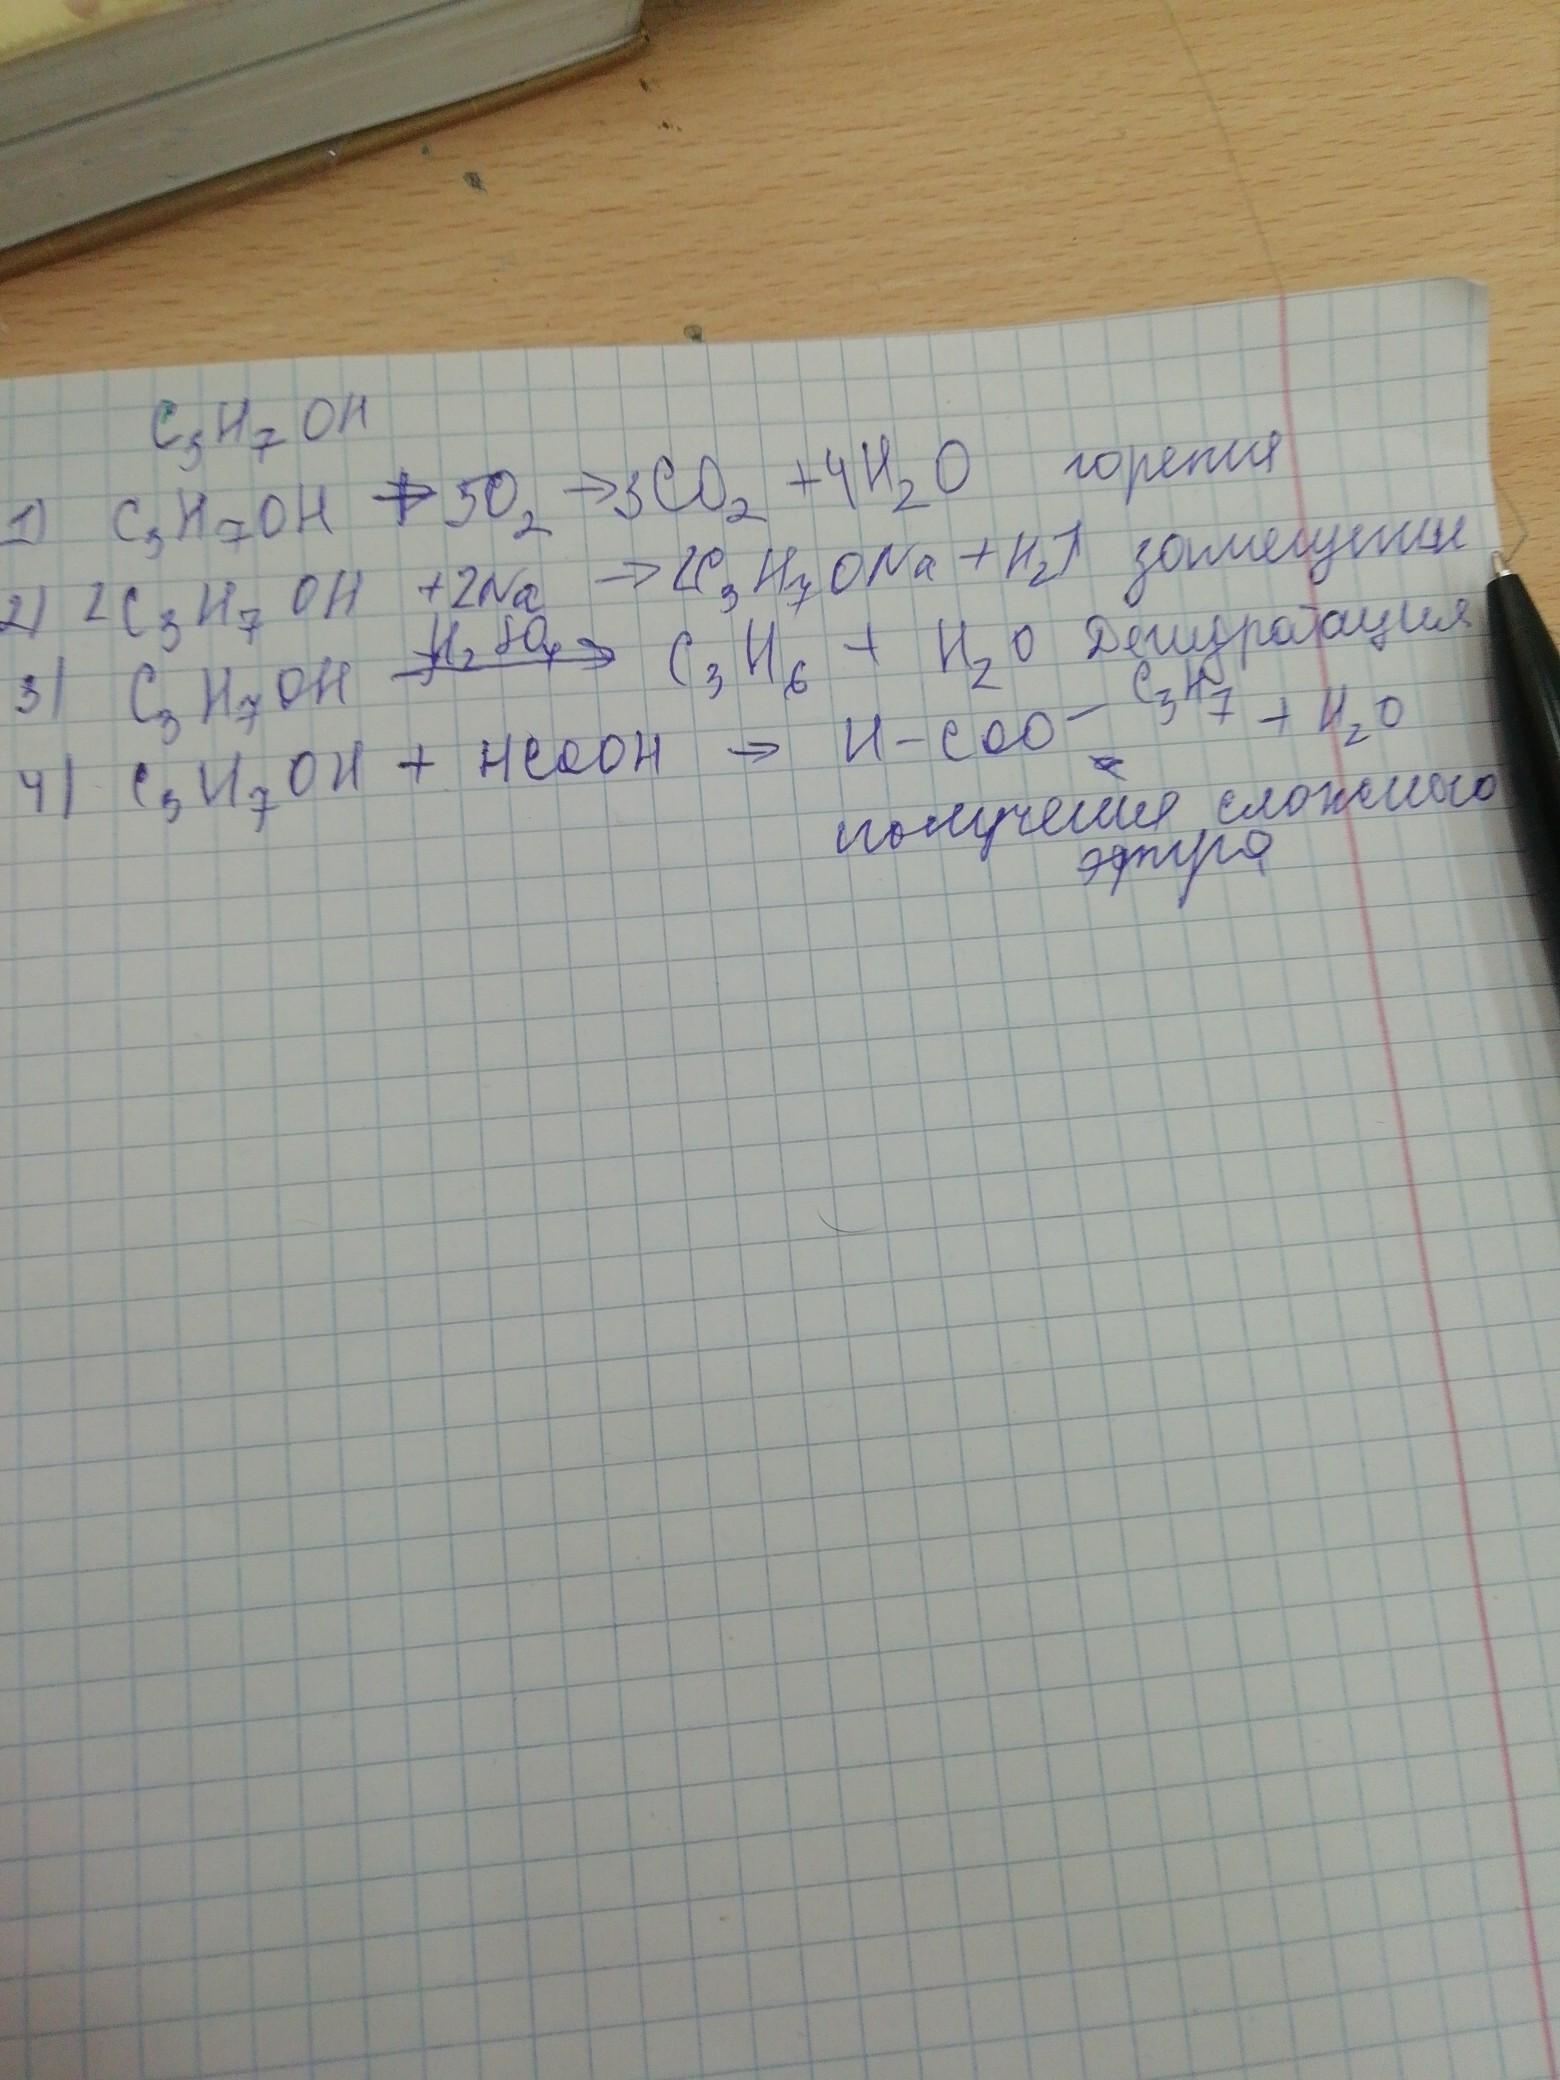 C₃H₇OH
1) C₃H₇OH + 5O₂ → 3CO₂ + 4H₂O горения
2) 2C₃H₇OH + 2Na → 2C₃H₇ONa + H₂↑ замещения
3) C₃H₇OH H₂SO₄→ C₃H₆ + H₂O Дегидратация
4) C₃H₇OH + HCOOH → H-COO-C₃H₇ + H₂O
получения сложного
эфира